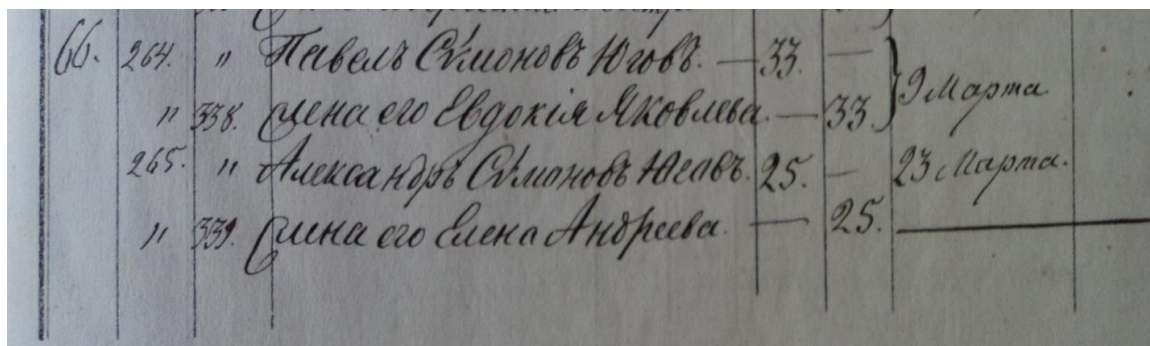 66. 264. " Павелъ Сѵмоновъ Юговъ. — 33. — 9 Марта
" 338. Жена его Евдокія Яковлева. — 33.
265. " Александръ Сѵмоновъ Юговъ. 25. — 23 Марта.
" 339. Жена его Елена Андреева. — 25.